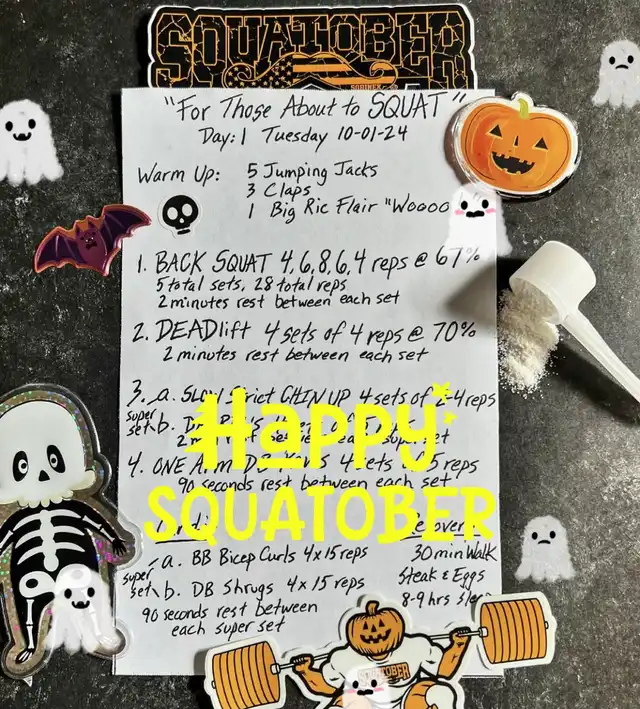 SQUATOBER
SORINEX
"For Those About to SQUAT"
Day: 1 Tuesday 10-01-24
Warm Up: 5 Jumping Jacks
3 Claps
1 Big Ric Flair "Woooo
1. BACK SQUAT 4,6,8,6,4 reps @ 67%
5 total sets, 28 total reps
2 minutes rest between each set
2. DEADlift 4 sets of 4 reps @ 70%
2 minutes rest between each set
3. a. SLOW Strict CHIN UP 4 sets of 2-4 reps
super set b.
super set
4. ONE Arm 4 sets 5 reps
90 seconds rest between each set
Happy
SQUATOBER
super set a. BB Bicep Curls 4x15 reps
b. DB Shrugs 4x15 reps
90 seconds rest between
each super set
30 min Walk
Steak & Eggs
8-9 hrs
SQUATOBER